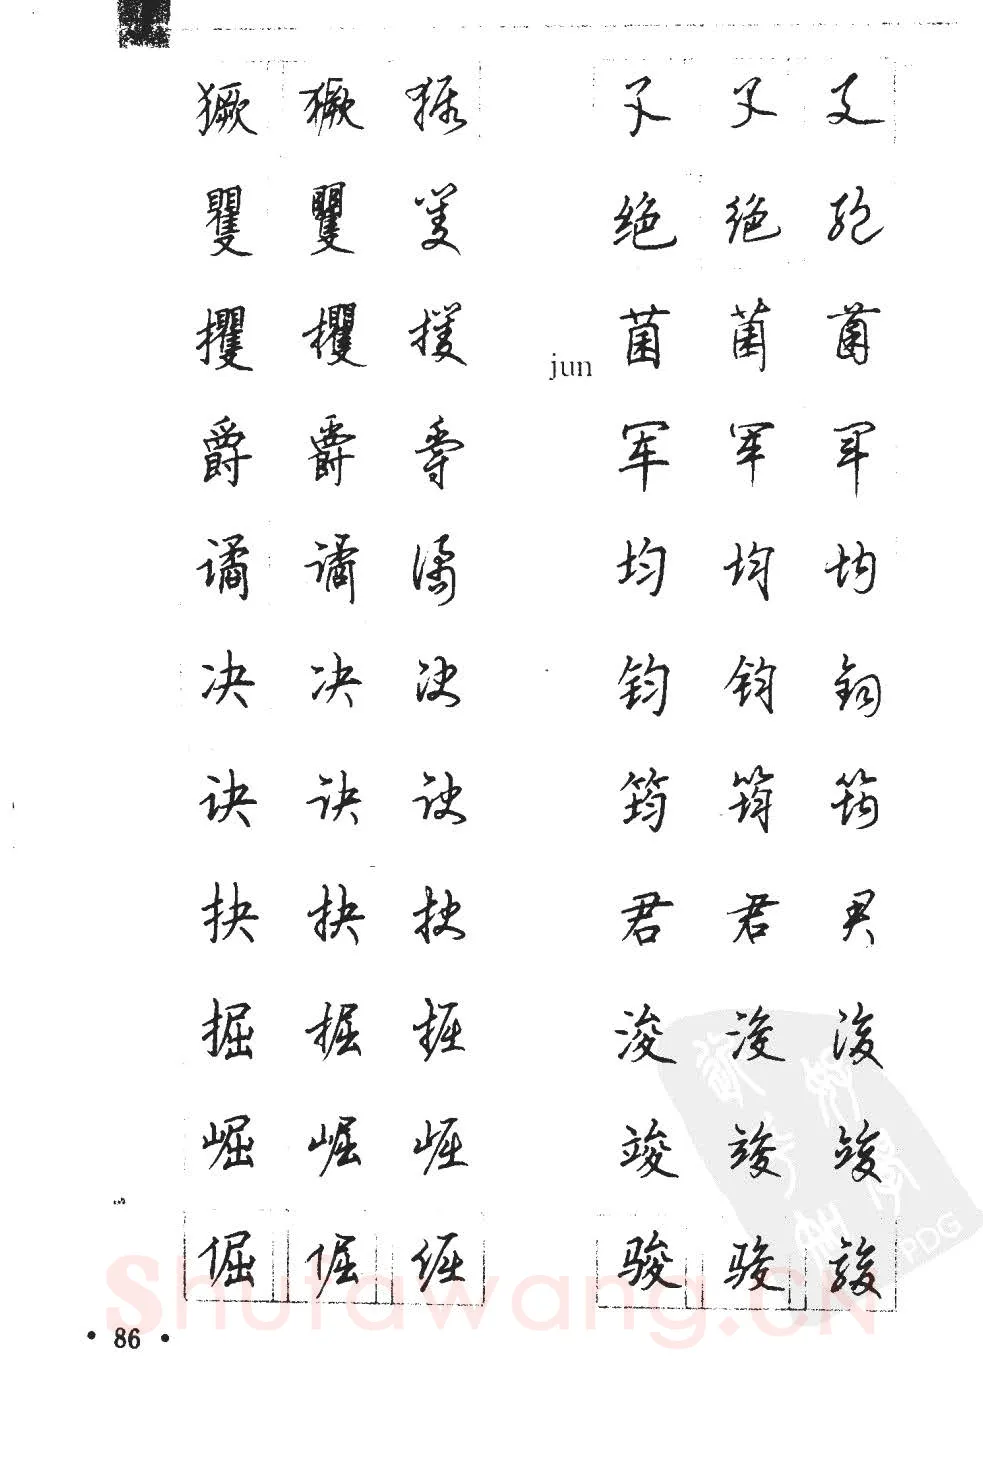 獗 獗 獗
矍 矍 矍
攫 攫 攫
爵 爵 爵
谲 谲 谲
决 决 决
诀 诀 诀
抉 抉 抉
掘 掘 掘
崛 崛 崛
倔 倔 倔
孓 孓 孓
绝 绝 绝
jun 菌 菌 菌
军 军 军
均 均 均
钧 钧 钧
筠 筠 筠
君 君 君
浚 浚 浚
竣 竣 竣
骏 骏 骏
PDG
Shufawang.CN
• 86 •